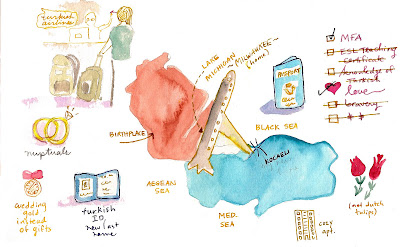 turkish
airlines
LAKE
MICHIGAN
MILWAUKEE
(home)
PASSPORT
MFA
ESL teaching
certificate
knowledge of
Turkish
love
bravery
BIRTHPLACE
BLACK SEA
KOCAELI
nuptuals
AEGEAN
SEA
MED.
SEA
wedding
gold
instead
of gifts
turkish
ID,
new last
name
cozy
apt.
(not dutch
tulips)